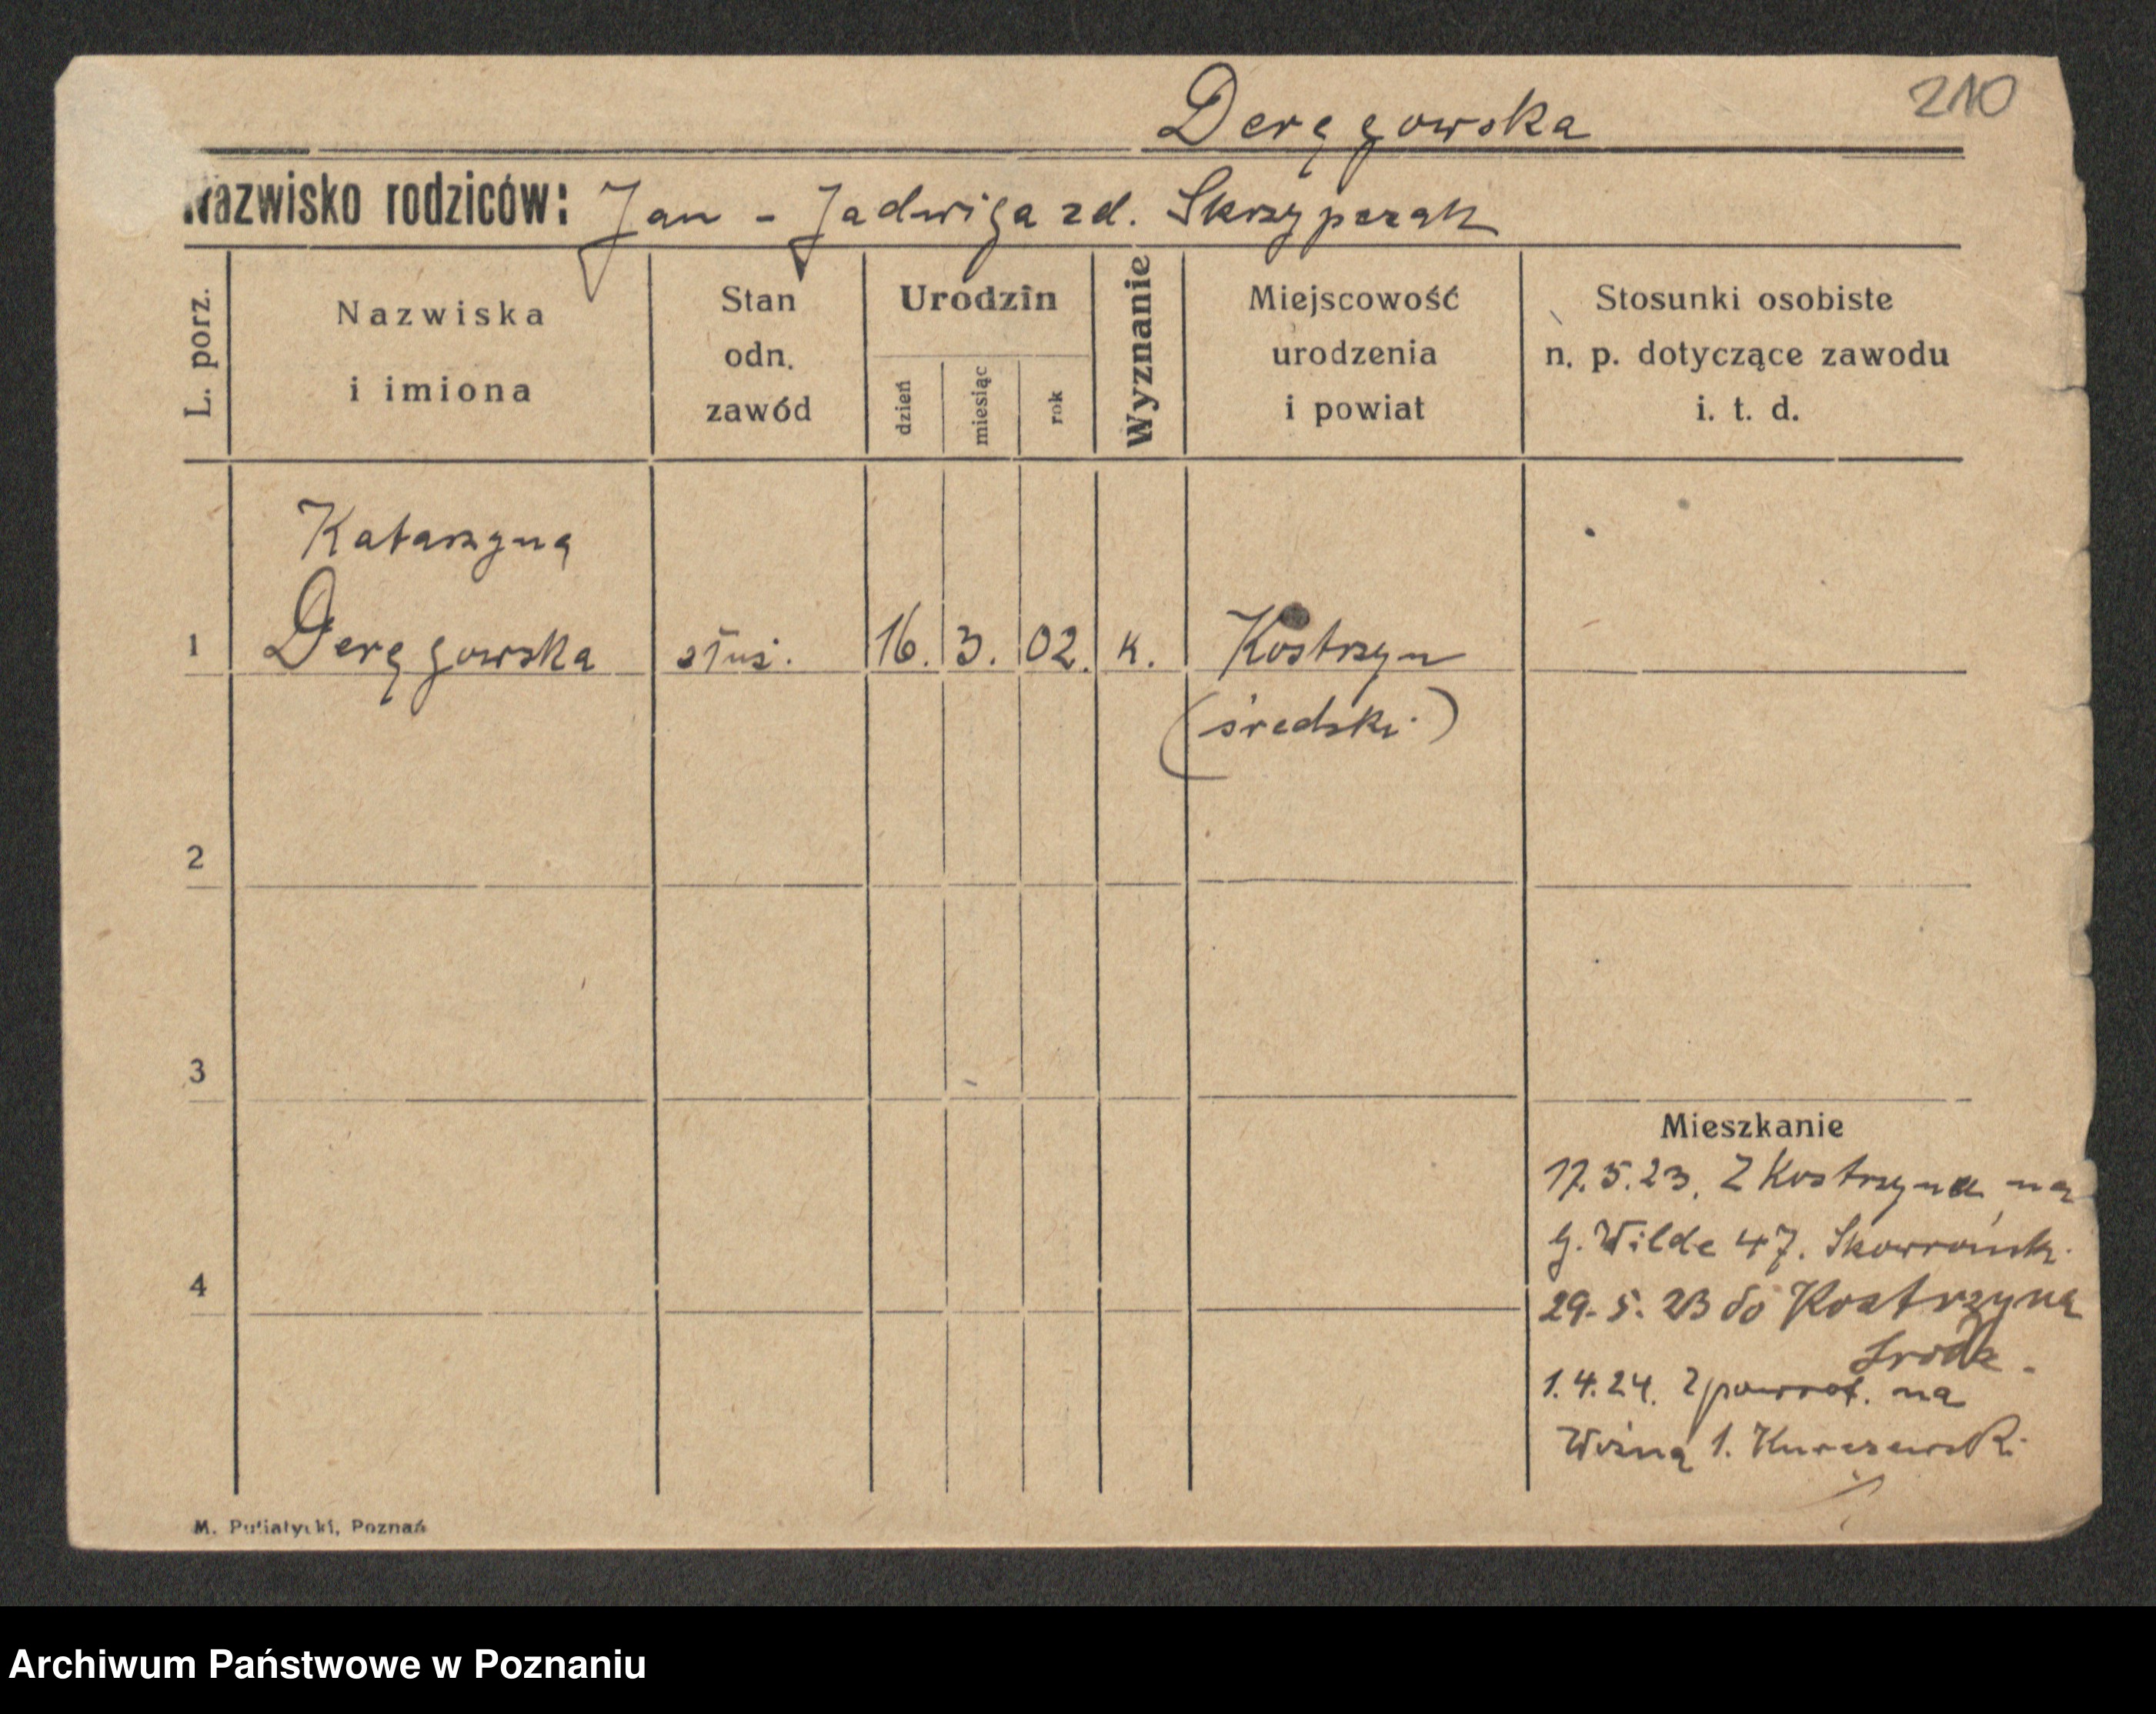 210
Deręgowska
Nazwisko rodziców: Jan - Jadwiga zd. Skrzypczak
L. porz.
Nazwiska
i imiona
Stan
odn.
zawód
Urodzin
dzień
miesiąc
rok
Wyznanie
Miejscowość
urodzenia
i powiat
Stosunki osobiste
n. p. dotyczące zawodu
i. t. d.
Katarzyna
1 Deręgowska służ. 16. 3. 02. k. Kostrzyn
(średzki)
2
3
4
Mieszkanie
17.5.23. Z Kostrzyna na
G. Wilde 47. Skowrońsk.
29.5.23 do Kostrzyna
Środa.
1.4.24. Zpowrot. na
Woźną 1.
M. Putiatycki, Poznań
Archiwum Państwowe w Poznaniu